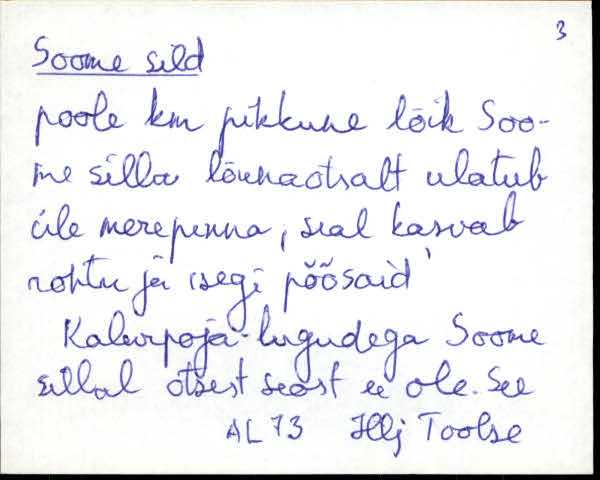 3
Soome sild
poole km pikkune lõik Soo-
me silla lõunaotsalt ulatub
üle merepinna, seal kasvab
rohtu ja isegi põõsaid
Kalevipoja-lugudega Soome
sillal otsest seost ei ole. See
AL 73 Hlj Toolse